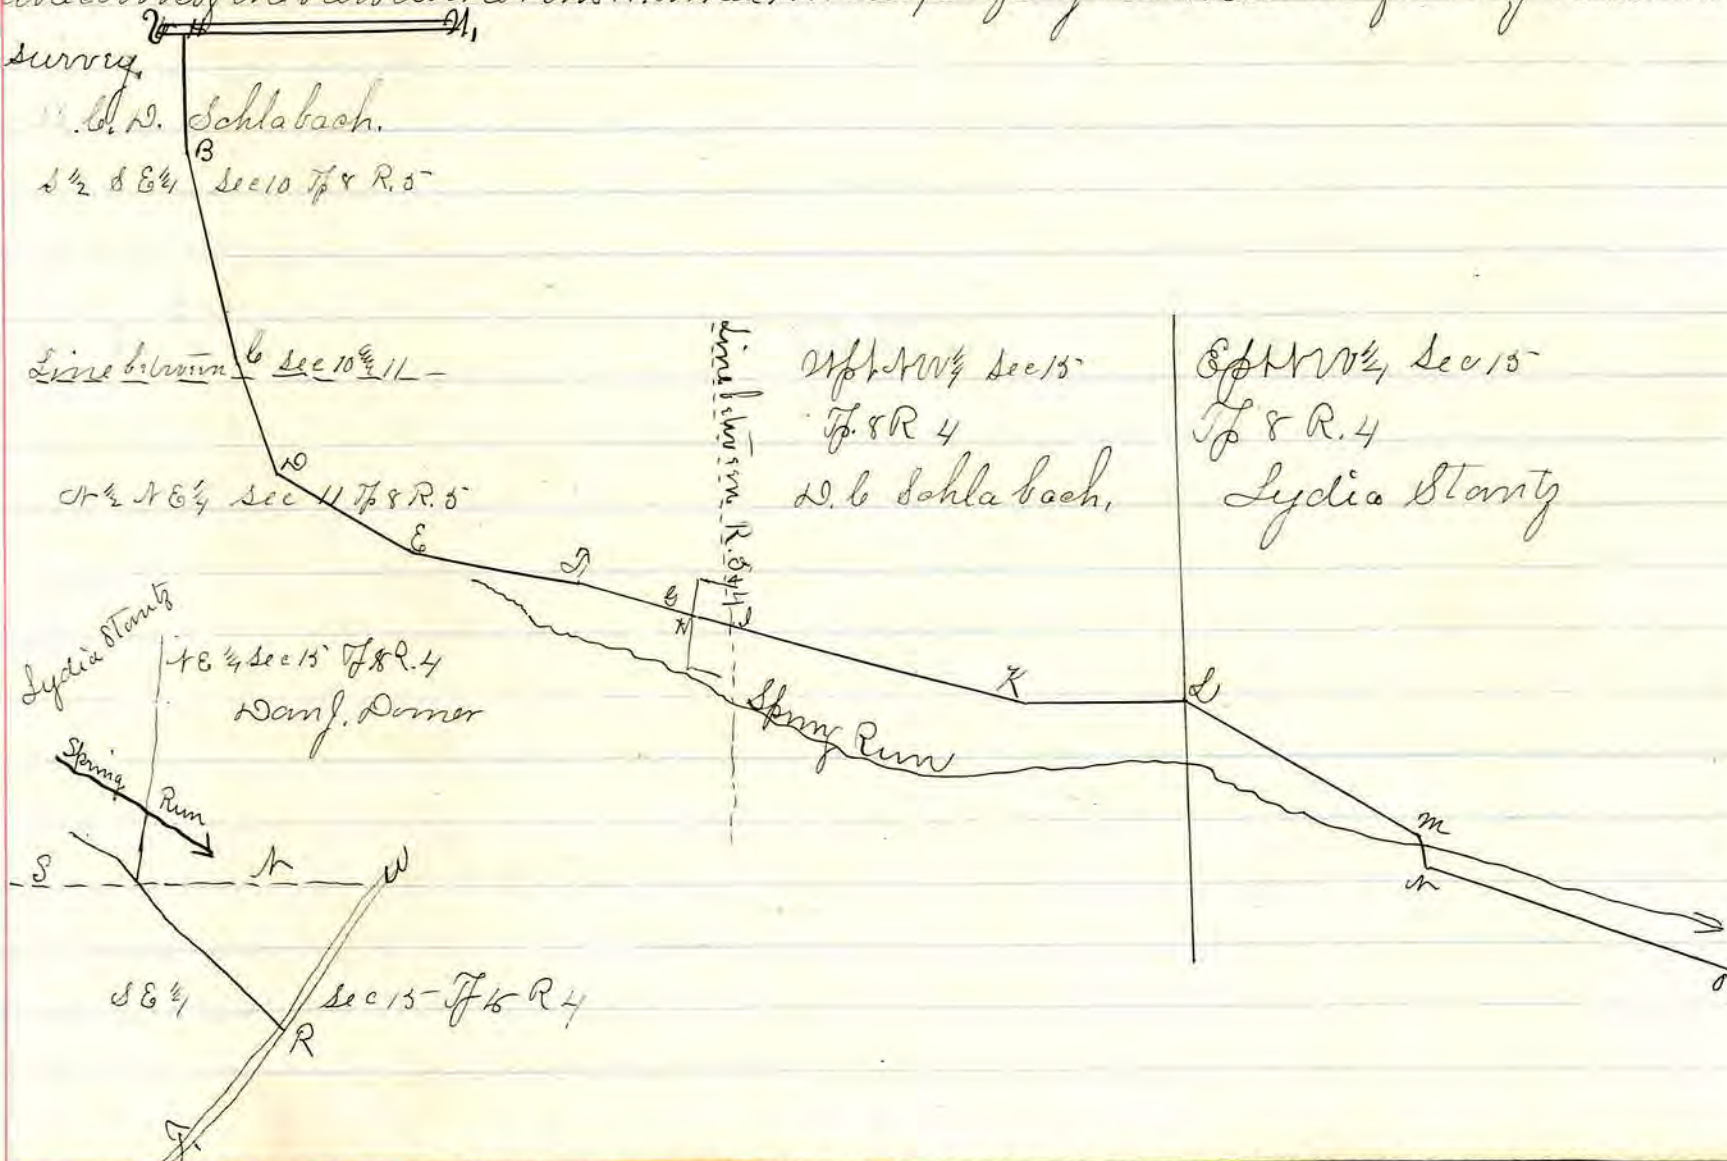 survey.
C. D. Schlabach.
B
S ½ S E ¼ Sec 10 Tp 8 R. 5
Line between C Sec 10 & 11
D
N ½ N E ¼ Sec 11 Tp 8 R. 5
E
F
G
H
I
Line between R. 5 & 4
W pt N W ¼ Sec 15
Tp. 8 R 4
D. C Schlabach.
E pt N W ¼, Sec 15
Tp 8 R. 4
Lydia Stantz
K
L
Spring Run
M
N
O
Lydia Stantz
N E ¼ Sec 15 Tp 8 R. 4
Dan J. Domer
Spring Run
S N
W
S E ¼ Sec 15 Tp R 4
R
T.